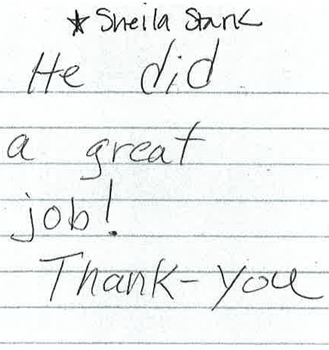 ★ Sheila Stark
He did
a great
job!
Thank-you